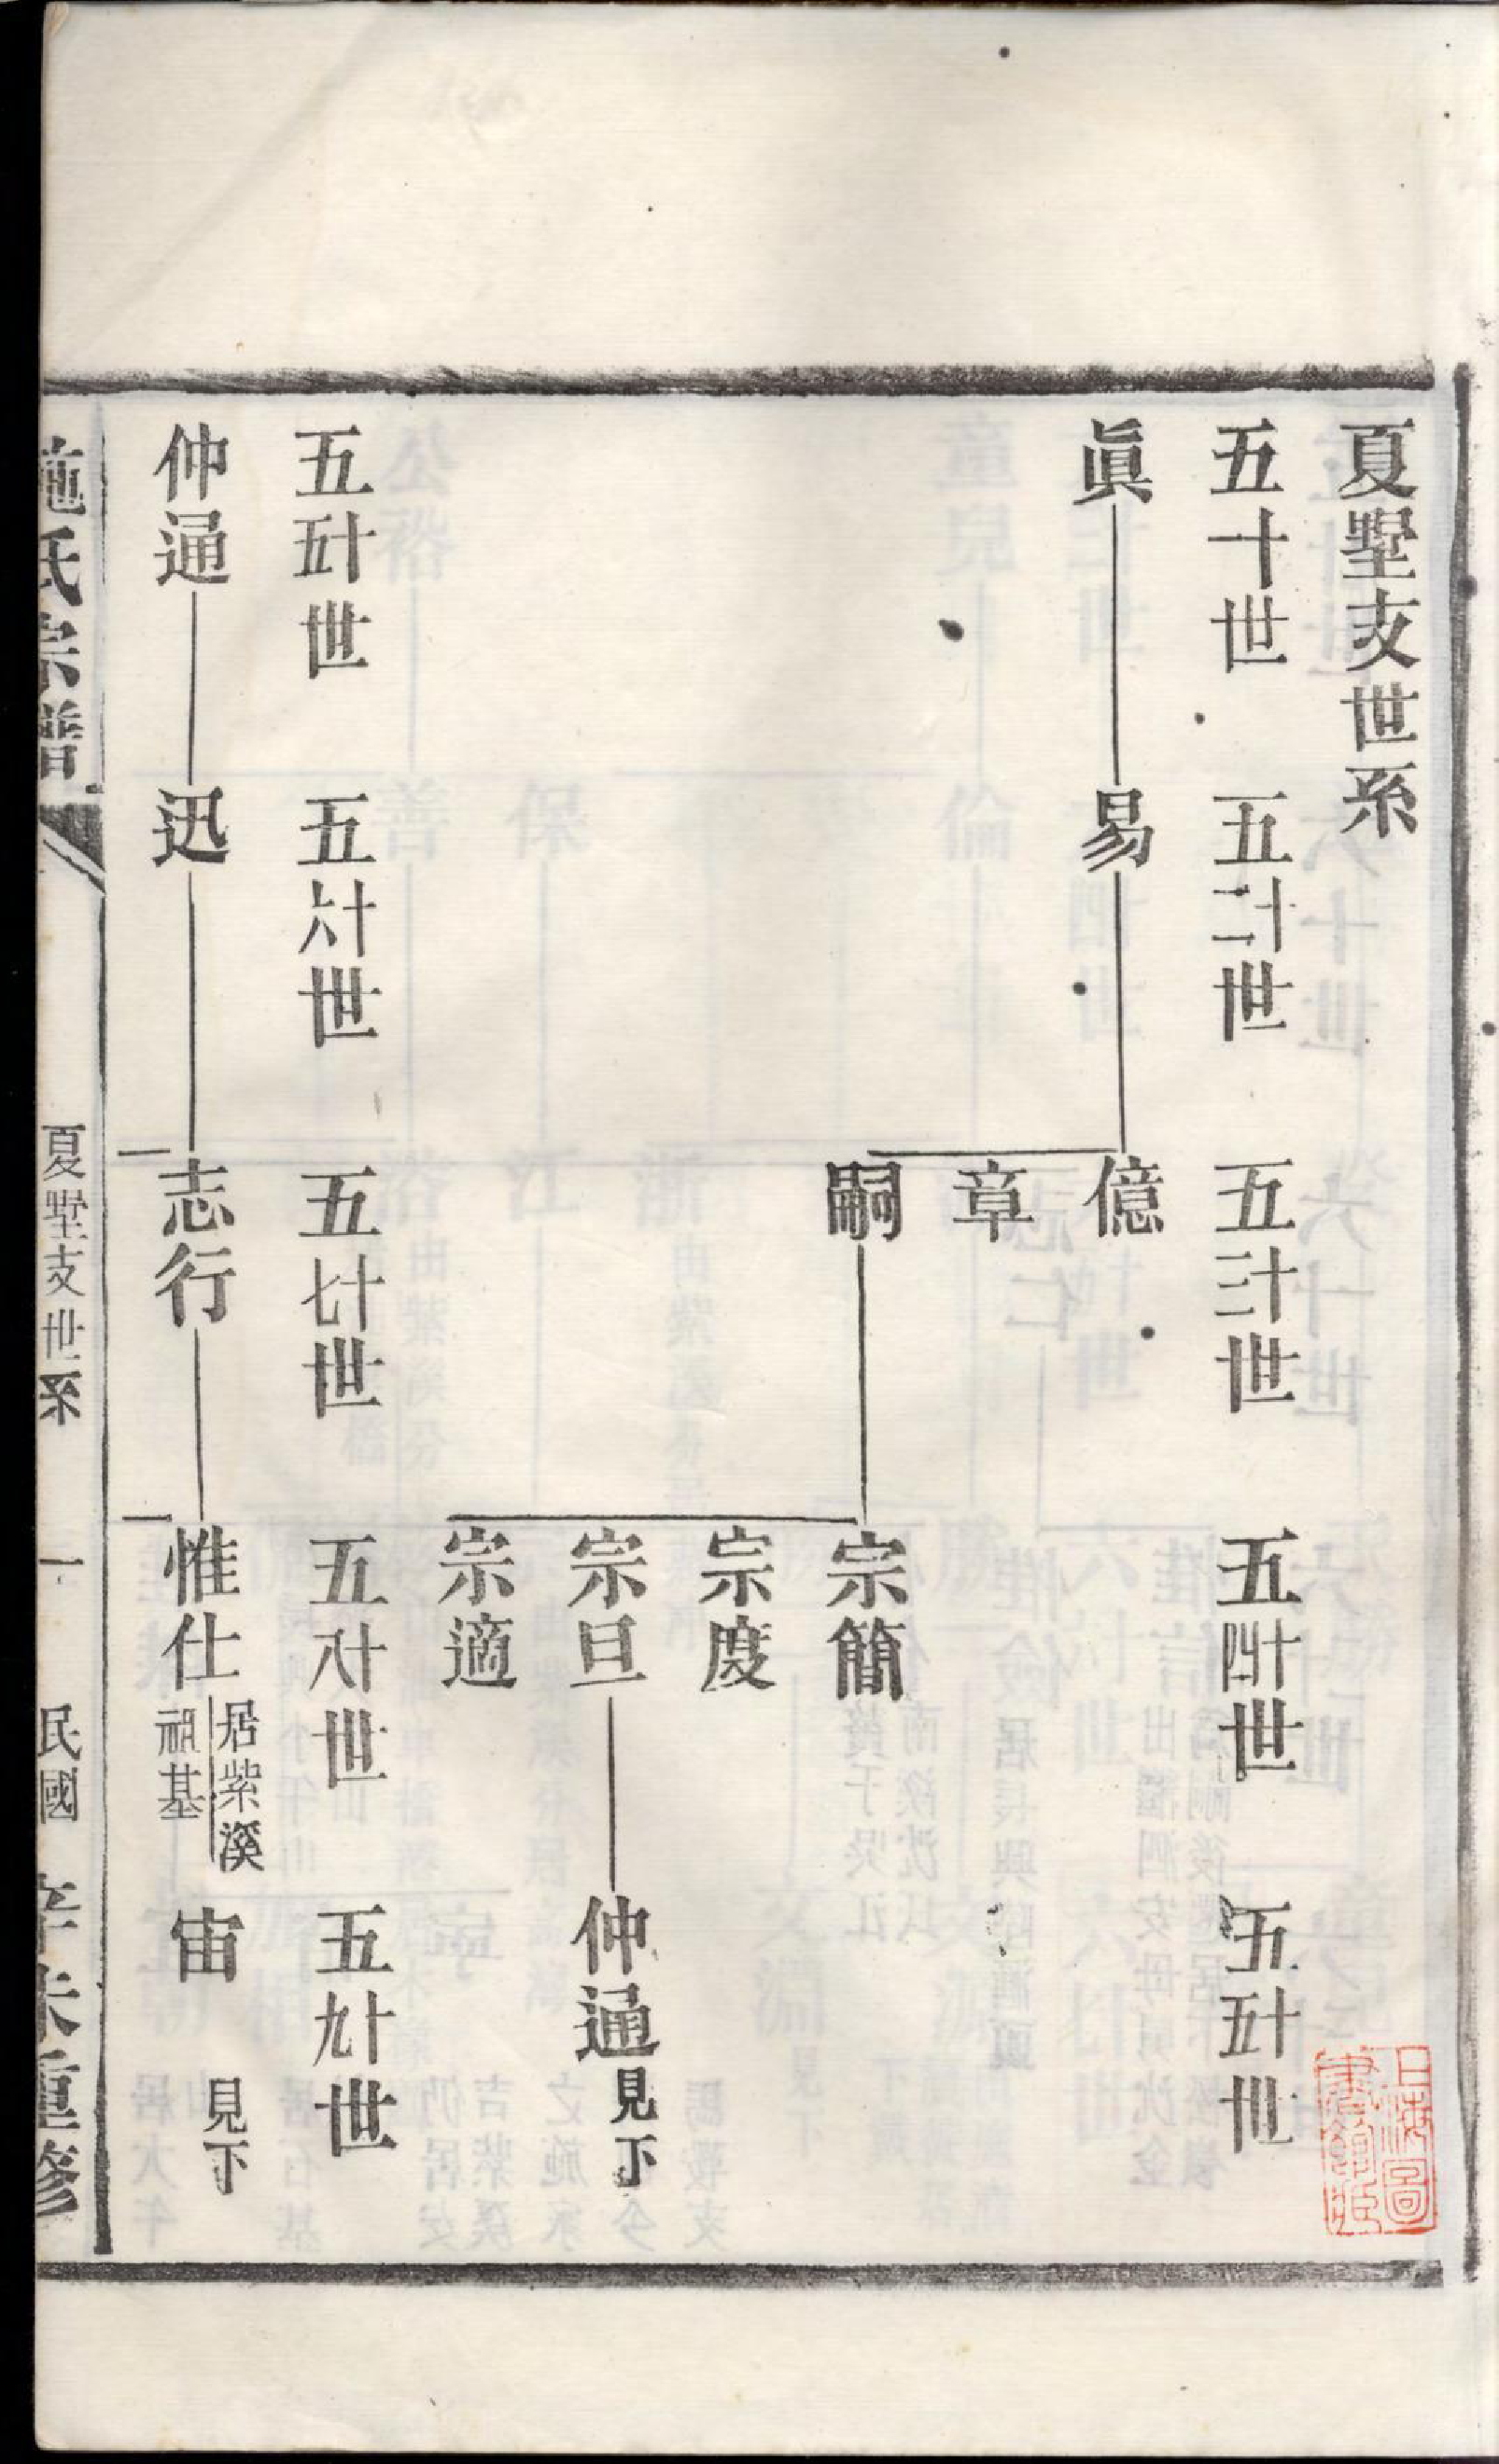 夏墅支世系
五十世 五十二世 五十三世 五十四世 五十五世
眞 易 億
章
嗣 宗簡
宗度
宗旦 仲通 見下
宗適
五十五世 五十六世 五十七世 五十八世 五十九世
仲通 迅 志行 惟仕 居紫溪
祖基
宙 見下
施氏宗譜 夏墅支世系 一 民國辛未重修
上海圖
書館藏